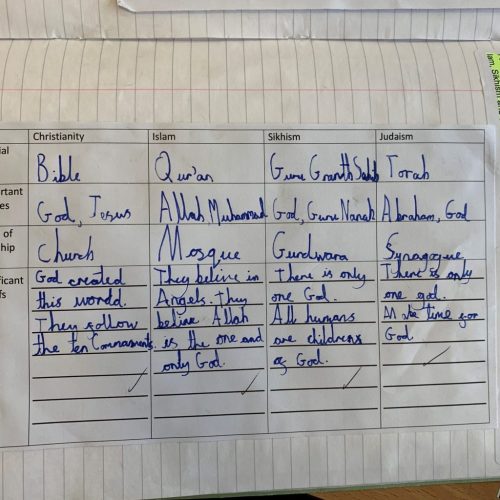 lam, Sikhism and
Christianity Islam Sikhism Judaism
ial Bible Qur'an Guru Granth Sahib Torah
ortant God, Jesus Allah Muhammad God, Guru Nanak Abraham, God
es
of Church Mosque Gurdwara Synagogue
hip
ficant God created They belive in There is only There is only
fs this world. Angels. They one God. one god.
They follow belive Allah All humans time for
the ten is the one and are childrens God
only God. of God.